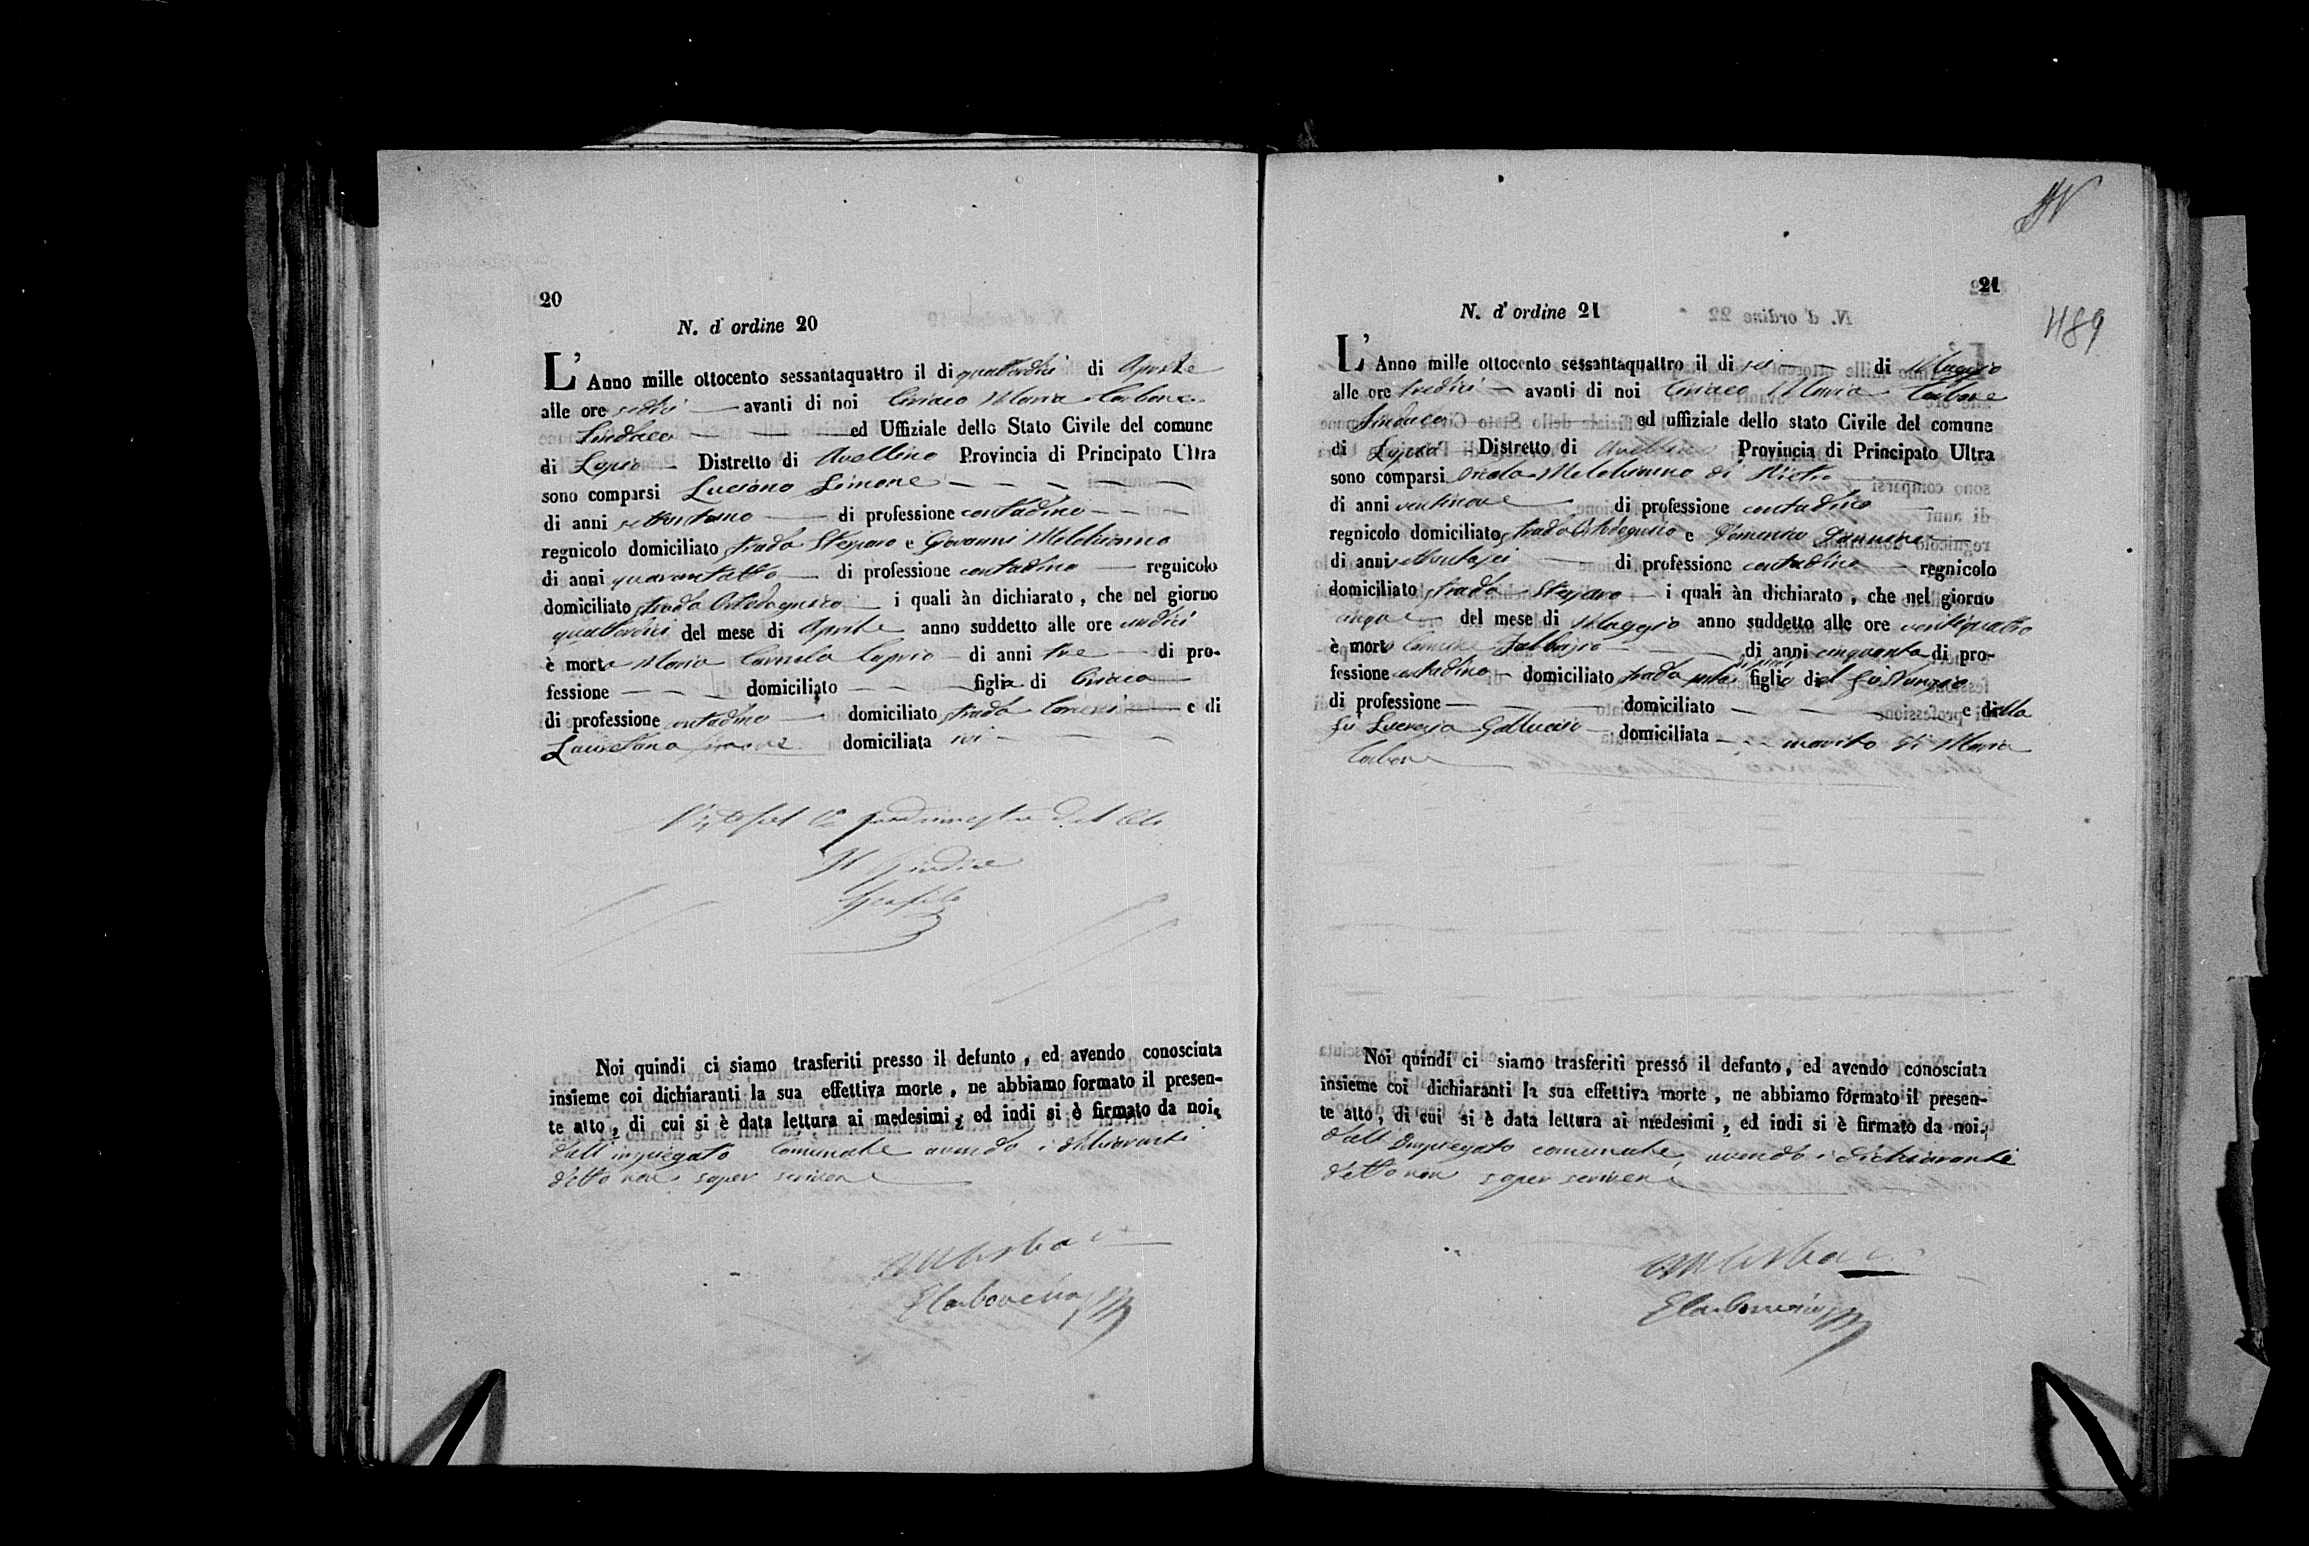 20
N. d' ordine 20
L' Anno mille ottocento sessantaquattro il di quattordici di Aprile
alle ore sedici avanti di noi Ciriaco Maria Carbone
Sindaco ed Uffiziale dello Stato Civile del comune
di Lapio Distretto di Avellino Provincia di Principato Ultra
sono comparsi Luciano Simone
di anni settantuno di professione contadino
regnicolo domiciliato strada Steparo e Giovanni Melchionno
di anni quarantotto di professione contadino regnicolo
domiciliato strada i quali àn dichiarato, che nel giorno
quattordici del mese di Aprile anno suddetto alle ore undici
è morta Maria Carmela Caprio di anni tre di pro-
fessione domiciliato figlia di Ciriaco
di professione contadino domiciliato strada e di
Lauretana domiciliata ivi
Il Giudice
Noi quindi ci siamo trasferiti presso il defunto, ed avendo conosciuta
insieme coi dichiaranti la sua effettiva morte, ne abbiamo formato il presen-
te atto, di cui si è data lettura ai medesimi, ed indi si è firmato da noi,
dall'impiegato comunale avendo i dichiaranti
detto non saper scrivere
21
489
N. d' ordine 21
L' Anno mille ottocento sessantaquattro il di sei di Maggio
alle ore tredici avanti di noi Ciriaco Maria Carbone
Sindaco ed uffiziale dello stato Civile del comune
di Lapio Distretto di Avellino Provincia di Principato Ultra
sono comparsi Melchionno di Pietro
di anni ventinove di professione contadino
regnicolo domiciliato strada e Domenico
di anni settantasei di professione contadino regnicolo
domiciliato strada Steparo i quali àn dichiarato, che nel giorno
cinque del mese di Maggio anno suddetto alle ore ventiquattro
è morto Carmine Fabbrizio di anni cinquanta di pro-
fessione contadino domiciliato strada figlio del fu
di professione domiciliato e della
fu Lucrezia Galluccio domiciliata marito di Maria
Carbone
Noi quindi ci siamo trasferiti presso il defunto, ed avendo conosciuta
insieme coi dichiaranti la sua effettiva morte, ne abbiamo formato il presen-
te atto, di cui si è data lettura ai medesimi, ed indi si è firmato da noi,
dall'Impiegato comunale avendo i dichiaranti
detto non saper scrivere